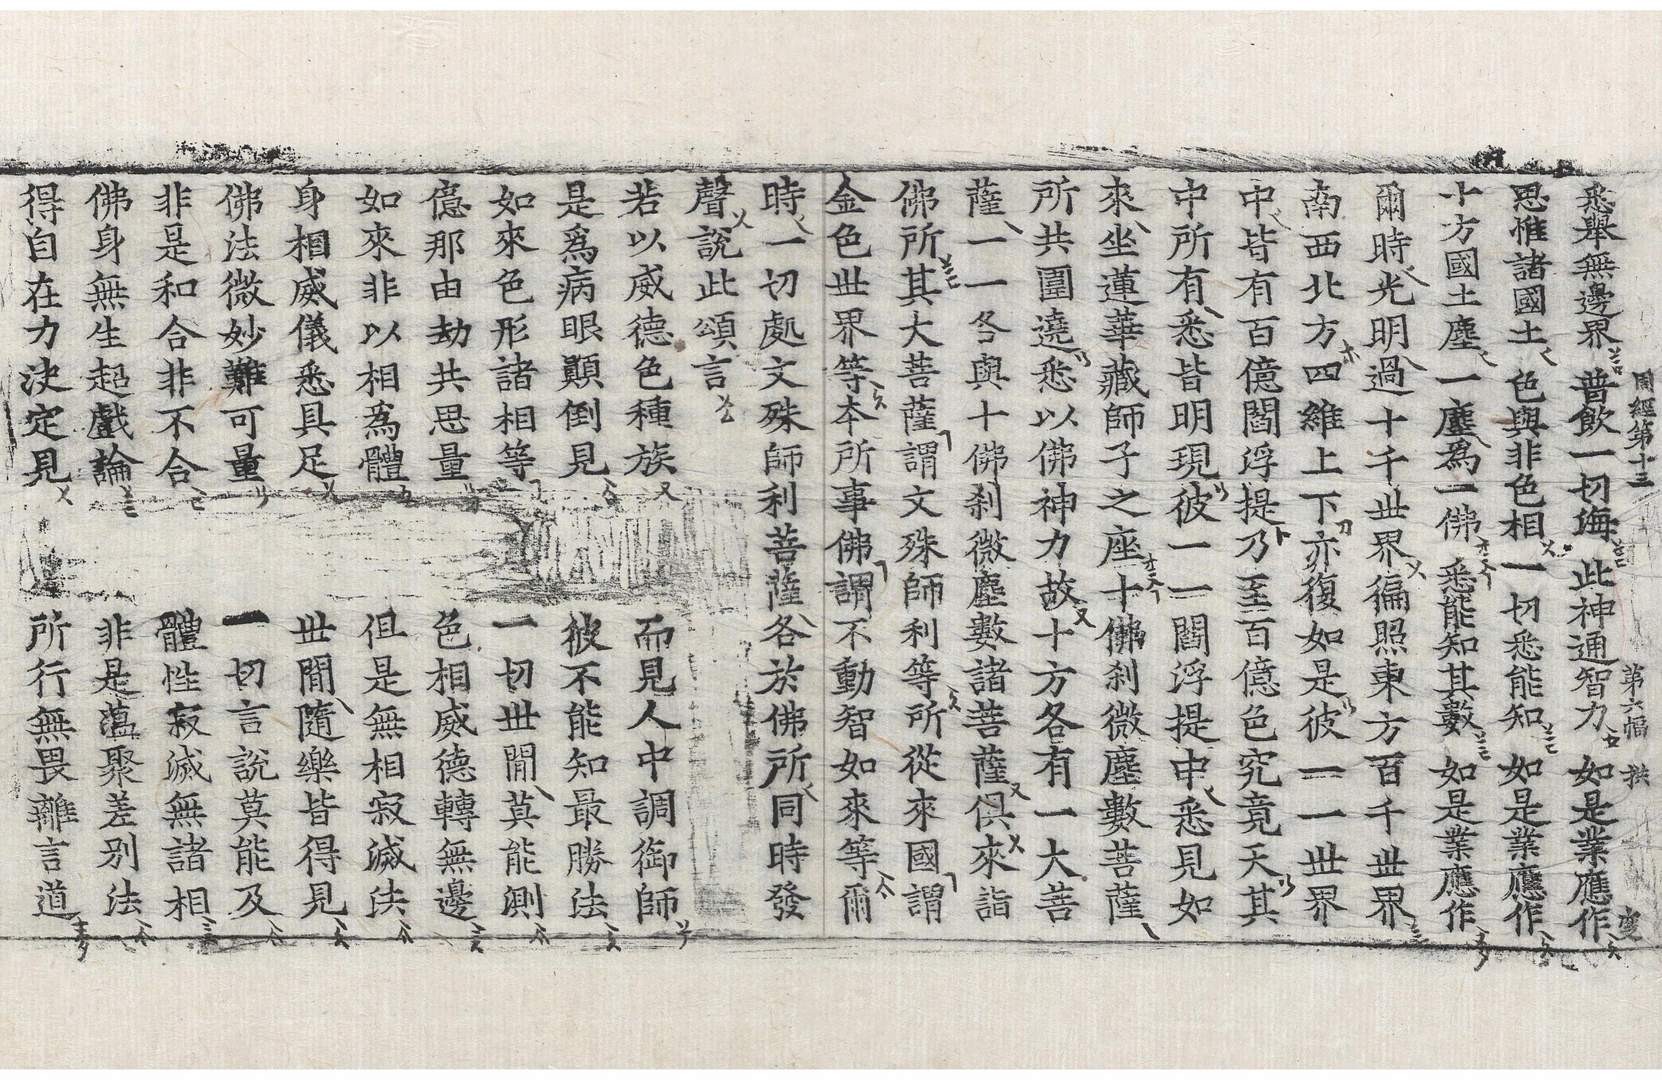 周經第十三 第六幅 拱 變
悉舉無邊界 普飲一切海 此神通智力 如是業應作
思惟諸國土 色與非色相 一切悉能知 如是業應作
十方國土塵 一塵爲一佛 悉能知其數 如是業應作
爾時光明過十千世界徧照東方百千世界
南西北方四維上下亦復如是彼一一世界
中皆有百億閻浮提乃至百億色究竟天其
中所有悉皆明現彼一一閻浮提中悉見如
來坐蓮華藏師子之座十佛刹微塵數菩薩
所共圍遶悉以佛神力故十方各有一大菩
薩一一各與十佛刹微塵數諸菩薩俱來詣
佛所其大菩薩謂文殊師利等所從來國謂
金色世界等本所事佛謂不動智如來等爾
時一切處文殊師利菩薩各於佛所同時發
聲說此頌言
若以威德色種族 而見人中調御師
是爲病眼顚倒見 彼不能知最勝法
如來色形諸相等 一切世閒莫能測
億那由劫共思量 色相威德轉無邊
如來非以相爲體 但是無相寂滅法
身相威儀悉具足 世閒隨樂皆得見
佛法微妙難可量 一切言說莫能及
非是和合非不合 體性寂滅無諸相
佛身無生超戲論 非是蘊聚差別法
得自在力決定見 所行無畏離言道